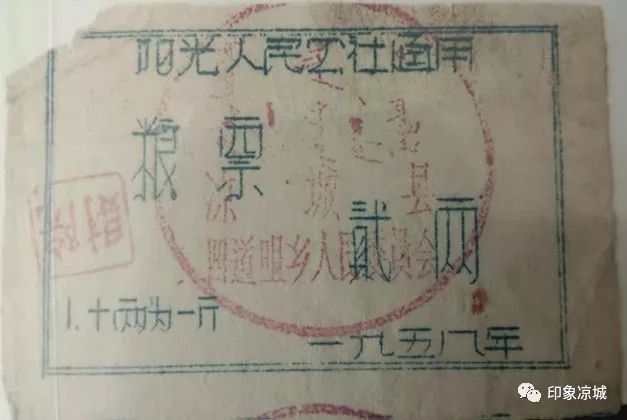 阳光人民公社通用
粮票
凉城县
贰两
四道咀乡人民委员会
1.十两为一斤
一九五八年
印象凉城